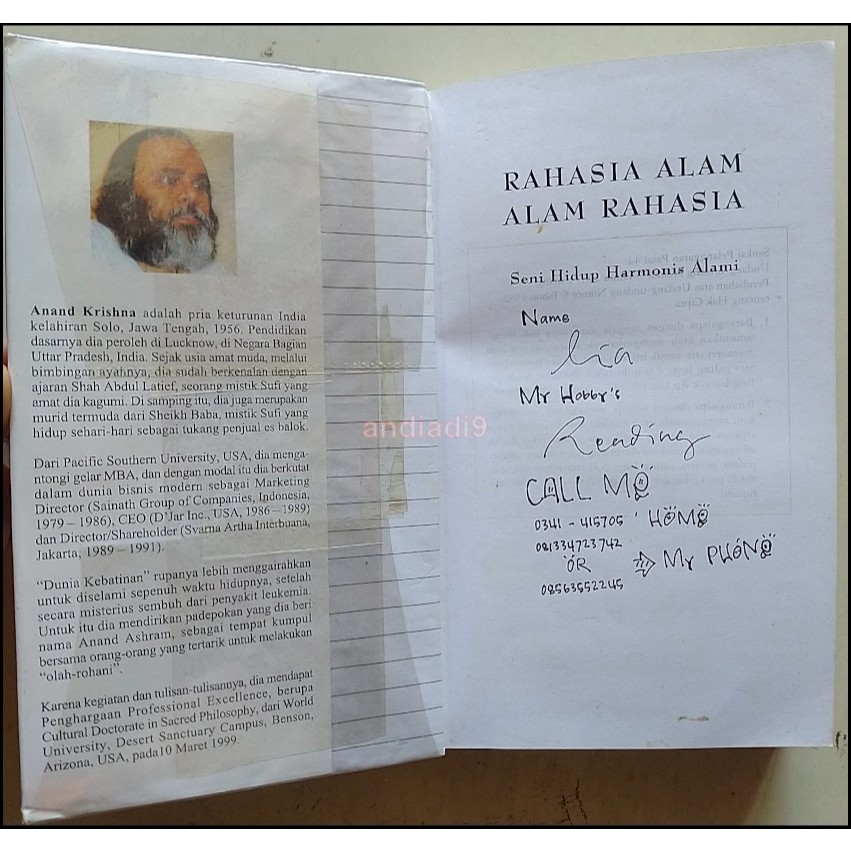 Anand Krishna adalah pria keturunan India
kelahiran Solo, Jawa Tengah, 1956. Pendidikan
dasarnya dia peroleh di Lucknow, di Negara Bagian
Uttar Pradesh, India. Sejak usia amat muda, melalui
bimbingan ayahnya, dia sudah berkenalan dengan
ajaran Shah Abdul Latief, seorang mistik Sufi yang
amat dia kagumi. Di samping itu, dia juga merupakan
murid termuda dari Sheikh Baba, mistik Sufi yang
hidup sehari-hari sebagai tukang penjual es balok.
Dari Pacific Southern University, USA, dia menga-
ntongi gelar MBA, dan dengan modal itu dia berkutat
dalam dunia bisnis modern sebagai Marketing
Director (Sainath Group of Companies, Indonesia,
1979 – 1986), CEO (D'Jar Inc., USA, 1986 – 1989)
dan Director/Shareholder (Svarna Artha Interbuana,
Jakarta, 1989 – 1991).
"Dunia Kebatinan" rupanya lebih menggairahkan
untuk diselami sepenuh waktu hidupnya, setelah
secara misterius sembuh dari penyakit leukemia.
Untuk itu dia mendirikan padepokan yang dia beri
nama Anand Ashram, sebagai tempat kumpul
bersama orang-orang yang tertarik untuk melakukan
"olah-rohani".
Karena kegiatan dan tulisan-tulisannya, dia mendapat
Penghargaan Professional Excellence, berupa
Cultural Doctorate in Sacred Philosophy, dari World
University, Desert Sanctuary Campus, Benson,
Arizona, USA, pada10 Maret 1999.
andiadi9
RAHASIA ALAM
ALAM RAHASIA
Seni Hidup Harmonis Alami
Name
Lia
My Hobby's
Reading
CALL Me
0341 - 415705 HOMe
081334723742
OR My PHONe
08563552245